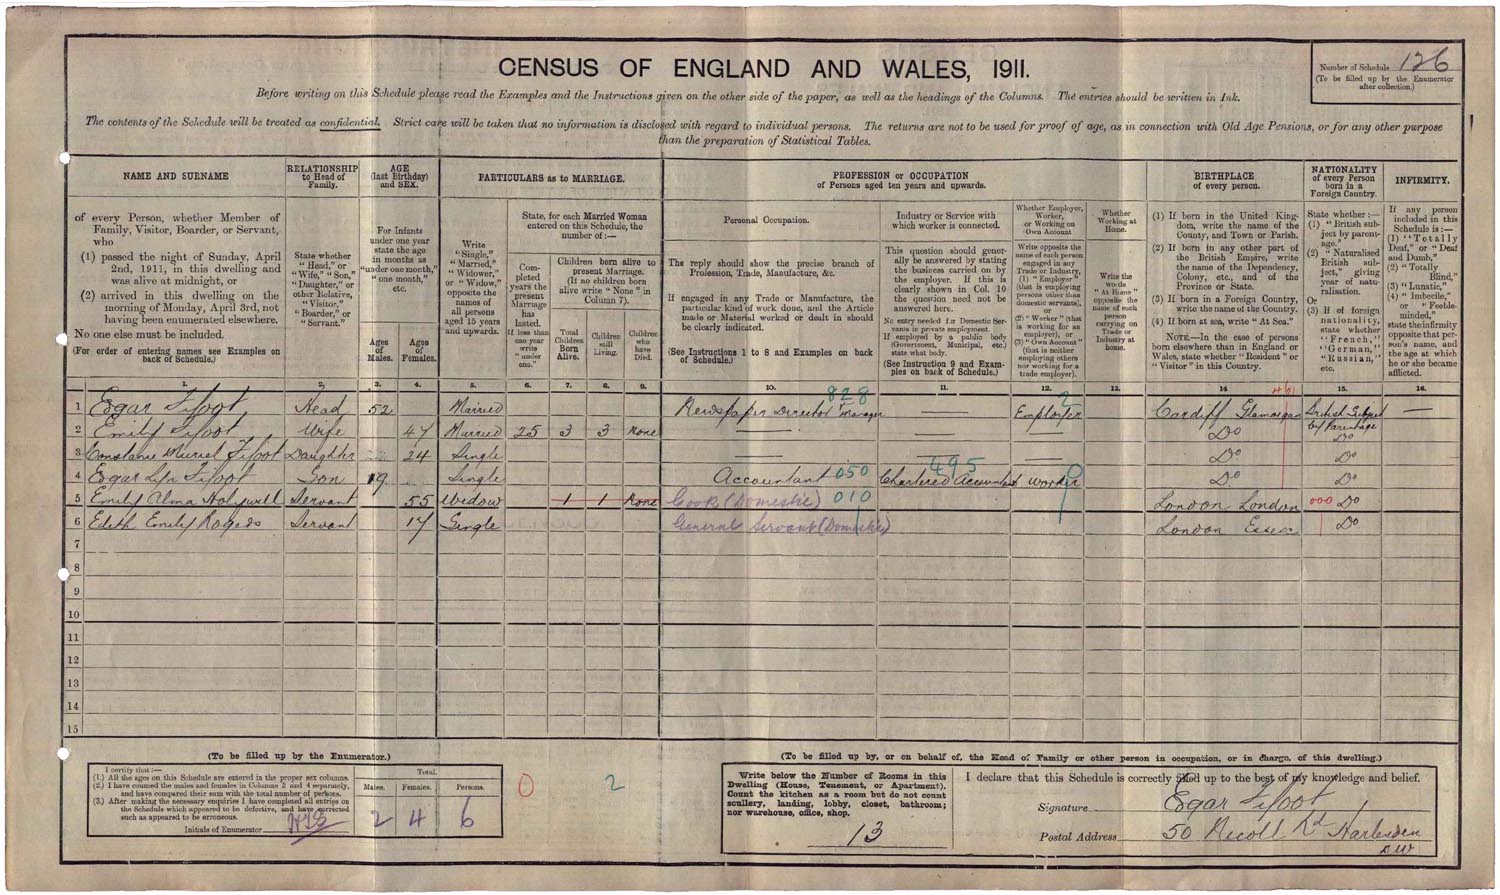 CENSUS OF ENGLAND AND WALES, 1911.
Number of Schedule 126
(To be filled up by the Enumerator
after collection.)
Before writing on this Schedule please read the Examples and the Instructions given on the other side of the paper, as well as the headings of the Columns. The entries should be written in Ink.
The contents of the Schedule will be treated as confidential. Strict care will be taken that no information is disclosed with regard to individual persons. The returns are not to be used for proof of age, as in connection with Old Age Pensions, or for any other purpose
than the preparation of Statistical Tables.
NAME AND SURNAME
of every Person, whether Member of
Family, Visitor, Boarder, or Servant,
who
(1) passed the night of Sunday, April
2nd, 1911, in this dwelling and
was alive at midnight, or
(2) arrived in this dwelling on the
morning of Monday, April 3rd, not
having been enumerated elsewhere.
No one else must be included.
(For order of entering names see Examples on
back of Schedule.)
RELATIONSHIP
to Head of
Family.
State whether
"Head," or
"Wife," "Son,"
"Daughter," or
other Relative,
"Visitor,"
"Boarder," or
"Servant."
AGE
(last Birthday)
and SEX.
For Infants
under one year
state the age
in months as
"under one month,"
"one month,"
etc.
Ages
of
Males.
Ages
of
Females.
PARTICULARS as to MARRIAGE.
Write
"Single,"
"Married,"
"Widower,"
or "Widow,"
opposite the
names of
all persons
aged 15 years
and upwards.
State, for each Married Woman
entered on this Schedule, the
number of:—
Completed
years the
present
Marriage
has
lasted.
If less than
one year
write
"under
one."
Children born alive to
present Marriage.
(If no children born
alive write "None" in
Column 7).
Total
Children
Born
Alive.
Children
still
Living.
Children
who
have
Died.
PROFESSION or OCCUPATION
of Persons aged ten years and upwards.
Personal Occupation.
The reply should show the precise branch of
Profession, Trade, Manufacture, &c.
If engaged in any Trade or Manufacture, the
particular kind of work done, and the Article
made or Material worked or dealt in should
be clearly indicated.
(See Instructions 1 to 8 and Examples on back
of Schedule.)
Industry or Service with
which worker is connected.
This question should generally
be answered by stating
the business carried on by
the employer. If this is
clearly shown in Col. 10
the question need not be
answered here.
No entry needed for Domestic Servants
in private employment.
If employed by a public body
(Government, Municipal, etc.)
state what body.
(See Instruction 9 and Examples
on back of Schedule.)
Whether Employer,
Worker,
or Working on
Own Account
Write opposite the
name of each person
engaged in any
Trade or Industry,
(1) "Employer"
(that is employing
persons other than
domestic servants),
or
(2) "Worker" (that
is working for an
employer), or
(3) "Own Account"
(that is neither
employing others
nor working for a
trade employer).
Whether
Working at
Home.
Write the
words
"At Home"
opposite the
name of each
person
carrying on
Trade or
Industry at
home.
BIRTHPLACE
of every person.
(1) If born in the United Kingdom,
write the name of the
County, and Town or Parish.
(2) If born in any other part of
the British Empire, write
the name of the Dependency,
Colony, etc., and of the
Province or State.
(3) If born in a Foreign Country,
write the name of the Country.
(4) If born at sea, write "At Sea."
NOTE.—In the case of persons
born elsewhere than in England or
Wales, state whether "Resident" or
"Visitor" in this Country.
NATIONALITY
of every Person
born in a
Foreign Country.
State whether:—
(1) "British subject
by parentage."
(2) "Naturalised
British subject,"
giving
year of naturalisation.
Or
(3) If of foreign
nationality,
state whether
"French,"
"German,"
"Russian,"
etc.
INFIRMITY.
If any person
included in this
Schedule is:—
(1) "Totally
Deaf," or "Deaf
and Dumb,"
(2) "Totally
Blind,"
(3) "Lunatic,"
(4) "Imbecile,"
or "Feebleminded,"
state the infirmity
opposite that person's
name, and
the age at which
he or she became
afflicted.
1. 2. 3. 4. 5. 6. 7. 8. 9. 10. 11. 12. 13. 14 15. 16.
828 2 461
1 Edgar Fifoot Head 52 Married Newspaper Director & Manager — Employer Cardiff Glamorgan British Subject by Parentage —
2 Emily Fifoot Wife 47 Married 25 3 3 None — — — Do Do
3 Constance Muriel Fifoot Daughter 24 Single — — — Do Do
4 Edgar Lyn Fifoot Son 19 Single Accountant 050 Chartered Accountant 495 Worker Do Do
5 Emily Alma Holywell Servant 55 Widow 1 1 None Cook (Domestic) 010 London London 000 Do
6 Edith Emily Rogers Servant 17 Single General Servant (Domestic) London Essex Do
7
8
9
10
11
12
13
14
15
(To be filled up by the Enumerator.)
I certify that:—
(1.) All the ages on this Schedule are entered in the proper sex columns.
(2.) I have counted the males and females in Columns 3 and 4 separately,
and have compared their sum with the total number of persons.
(3.) After making the necessary enquiries I have completed all entries on
the Schedule which appeared to be defective, and have corrected
such as appeared to be erroneous.
Initials of Enumerator
Total.
Males. Females. Persons.
2 4 6
0 2
(To be filled up by, or on behalf of, the Head of Family or other person in occupation, or in charge, of this dwelling.)
Write below the Number of Rooms in this
Dwelling (House, Tenement, or Apartment).
Count the kitchen as a room but do not count
scullery, landing, lobby, closet, bathroom;
nor warehouse, office, shop.
13
I declare that this Schedule is correctly filled up to the best of my knowledge and belief.
Signature Edgar Fifoot
Postal Address 50 Nicoll Rd Harlesden
NW